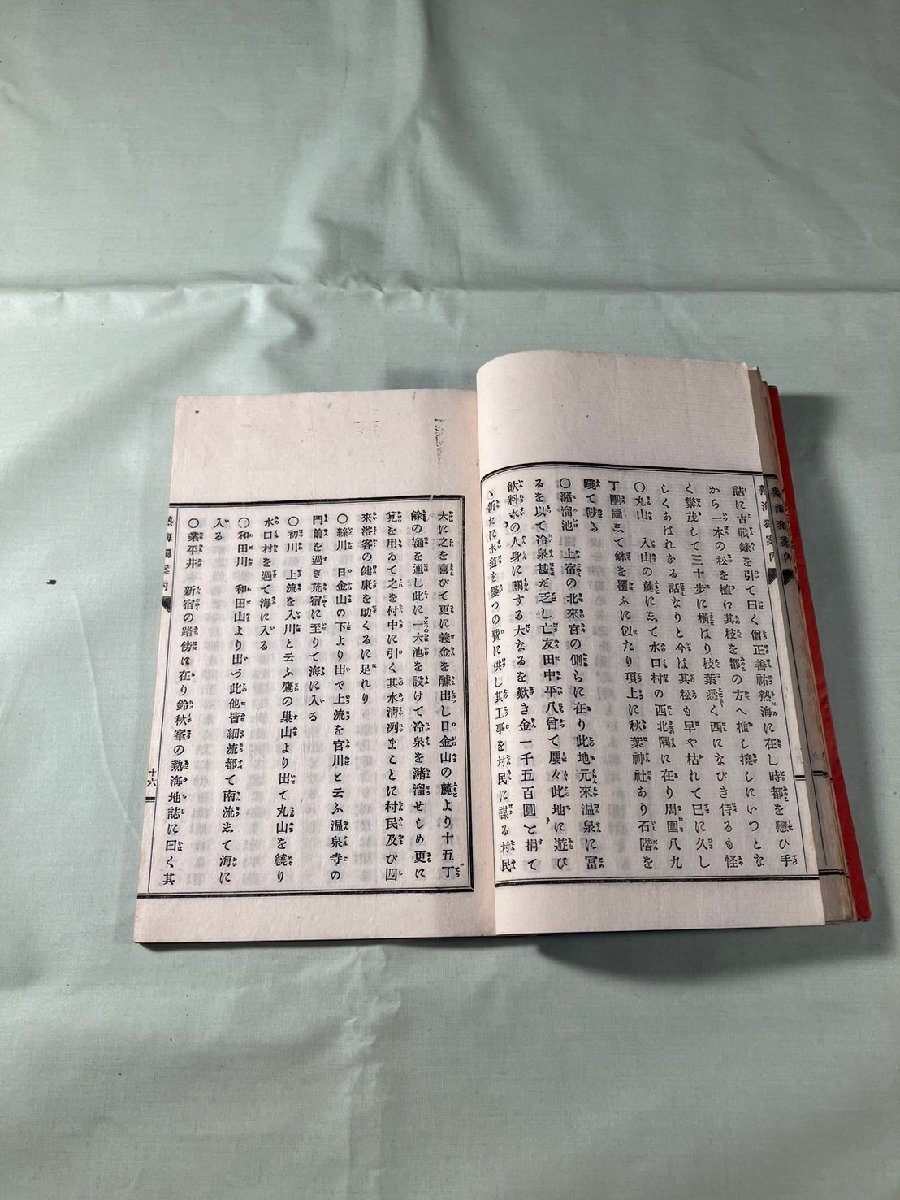 詰に古戰録を引て曰く僧正善祐熱海に在し時都を戀ひ手
から一本の松を植ゑ其枝を都の方へ推し撓しにいつとな
く繁茂して三十歩に横はり枝葉悉く西になびき侍るも怪
しくあはれなる話なりと今は其松も早や枯れて已に久し
〇丸山 入山の麓に在て水口村の西北隅に在り周圍八九
丁團圓として鉢を覆ふに似たり頂上に秋葉神社あり石階を
躋て陟る
〇溜池 上宿の北來宮の側らに在り此地元來温泉に富
るを以て冷泉甚だ乏し亡友田中平八曾て屢々此地に遊び
飲料水の人身に關する大なるを歎き金一千五百圓を捐て
新たに水道を疊つの費に供し其工事を地民に謀る地民
大に之を喜びて更に義金を醵出し日金山の麓より十五丁
餘の樋を連し此に一大池を設けて冷泉を瀦溜せしめ更に
筧を用ゐて之を村中に引く其水清冽まことに村民及び四
來浴客の健康を助くるに足れり
〇糸川 日金山の下より出で上流を宮川と云ふ温泉寺の
門前を過ぎ荒宿に至りて海に入る
〇初川 上流を入川と云ふ鷹の巣山より出て丸山を繞り
水口村を過て海に入る
〇和田川 和田山より出づ此他皆細流都て南流して海に
入る
〇業平井 新宿の路傍に在り鈴秋寮の熱海地誌に曰く其
十六